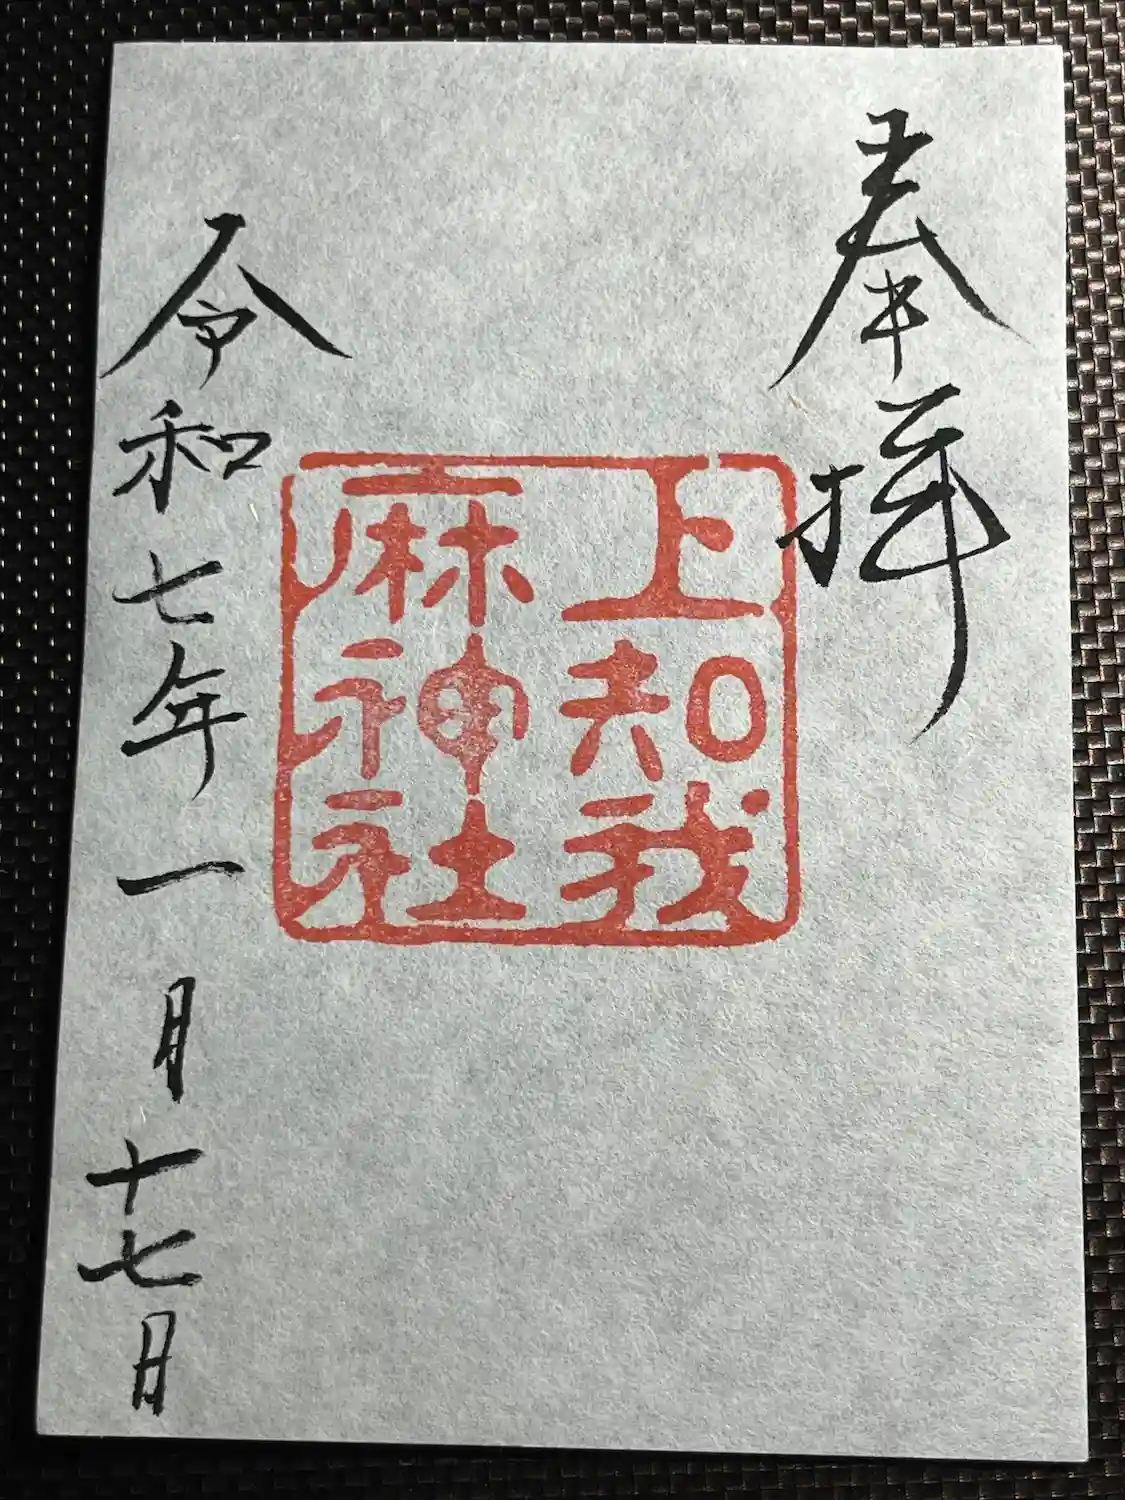 奉拝
上知我
麻神社
令和七年一月十七日